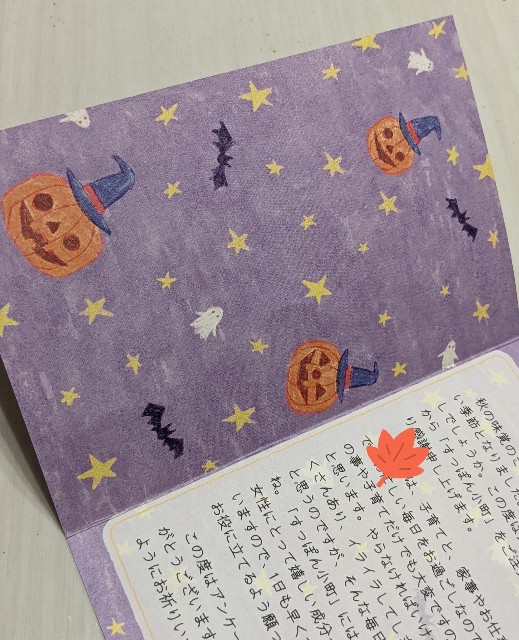 秋の味覚の
い季節となりました
しでしょうか。この度は
から「すっぽん小町」をご注
り感謝申し上げます。
は、子育て、家事やお仕
しい毎日をお過ごしなの
の事や子育てだけでも大変です
と思います。やらなければい
くさんあり、イライラしてし
と思うのですが、そんな毎
ね。「すっぽん小町」には
女性にとって嬉しい成分
いますので、1日も早く
お役に立てるよう願っ
この度はアンケー
がとうございます
ようにお祈りい